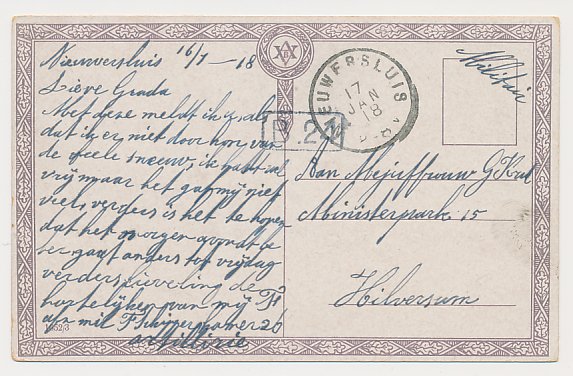 Nieuwersluis 16/1 - 18
Lieve Grada
Met deze meldt ik u, als
dat ik er niet door kon van
de veele sneeuw, ik had wel
vrij maar het gaf mij niet
veel, verders is het te hopen
dat het morgen avond be
ter gaat anders tot vrijdag
verders lieveling de
hartelijken van mij F
aan mil F Schipper kamer 26
artillirie
1652/3
NIEUWERSLUIS
17 JAN 18
Militair
Aan Mejuffrouw G
Ministerpark 15
Hilversum